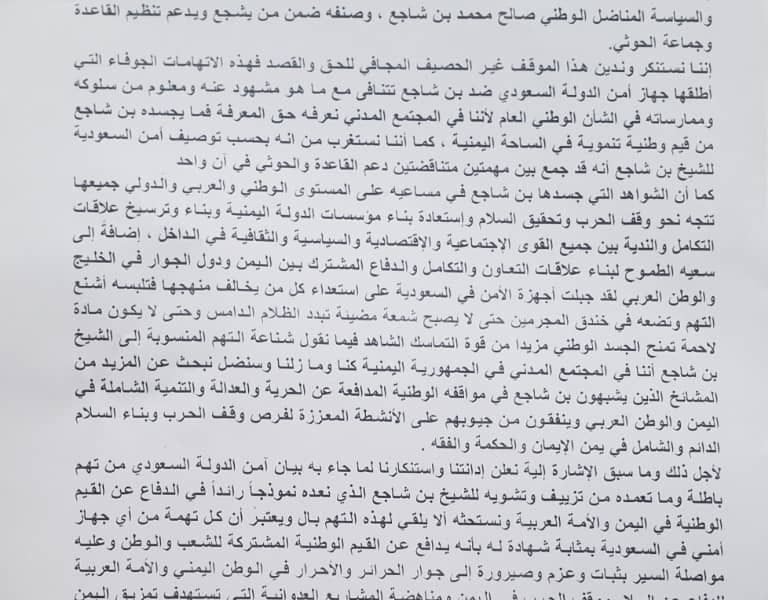 والسياسة المناضل الوطني صالح محمد بن شاجع ، وصنفه ضمن من يشجع ويدعم تنظيم القاعدة
وجماعة الحوثي.
إننا نستنكر وندين هذا الموقف غير الحصيف المجافي للحق والقصد فهذه الاتهامات الجوفاء التي
أطلقها جهاز أمن الدولة السعودي ضد بن شاجع تتنافى مع ما هو مشهود عنه ومعلوم من سلوكه
وممارساته في الشأن الوطني العام لأننا في المجتمع المدني نعرفه حق المعرفة فما يجسده بن شاجع
من قيم وطنية تنموية في الساحة اليمنية ، كما أننا نستغرب من انه بحسب توصيف أمن السعودية
للشيخ بن شاجع أنه قد جمع بين مهمتين متناقضتين دعم القاعدة والحوثي في آن واحد
كما أن الشواهد التي جسدها بن شاجع في مساعيه على المستوى الوطني والعربي والدولي جميعها
تتجه نحو وقف الحرب وتحقيق السلام وإستعادة بناء مؤسسات الدولة اليمنية وبناء وترسيخ علاقات
التكامل والندية بين جميع القوى الاجتماعية والإقتصادية والسياسية والثقافية في الداخل ، إضافة إلى
سعيه الطموح لبناء علاقات التعاون والتكامل والدفاع المشترك بين اليمن ودول الجوار في الخليج
والوطن العربي لقد جبلت أجهزة الأمن في السعودية على استعداء كل من يخالف منهجها فتلبسه أشنع
التهم وتضعه في خندق المجرمين حتى لا يصبح شمعة مضيئة تبدد الظلام الدامس وحتى لا يكون مادة
لاحمة تمنح الجسد الوطني مزيدا من قوة التماسك الشاهد فيما نقول شناعة التهم المنسوبة إلى الشيخ
بن شاجع أننا في المجتمع المدني في الجمهورية اليمنية كنا وما زلنا وسنضل نبحث عن المزيد من
المشائخ الذين يشبهون بن شاجع في مواقفه الوطنية المدافعة عن الحرية والعدالة والتنمية الشاملة في
اليمن والوطن العربي وينفقون من جيوبهم على الأنشطة المعززة لفرص وقف الحرب وبناء السلام
الدائم والشامل في يمن الإيمان والحكمة والفقه .
لأجل ذلك وما سبق الإشارة إلية نعلن إدانتنا واستنكارنا لما جاء به بيان آمن الدولة السعودي من تهم
باطلة وما تعمده من تزييف وتشويه للشيخ بن شاجع الذي نعده نموذجاً رائداً في الدفاع عن القيم
الوطنية في اليمن والأمة العربية ونستحثه ألا يلقي لهذه التهم بال ويعتبر أن كل تهمة من أي جهاز
أمني في السعودية بمثابة شهادة له بأنه يدافع عن القيم الوطنية المشتركة للشعب والوطن وعليه
مواصلة السير بثبات وعزم وصيرورة إلى جوار الحرائر والأحرار في الوطن اليمني والأمة العربية
الحرب في اليمن ومناهضة المشاريع العدوانية التي تستهدف تمزيق اليمن